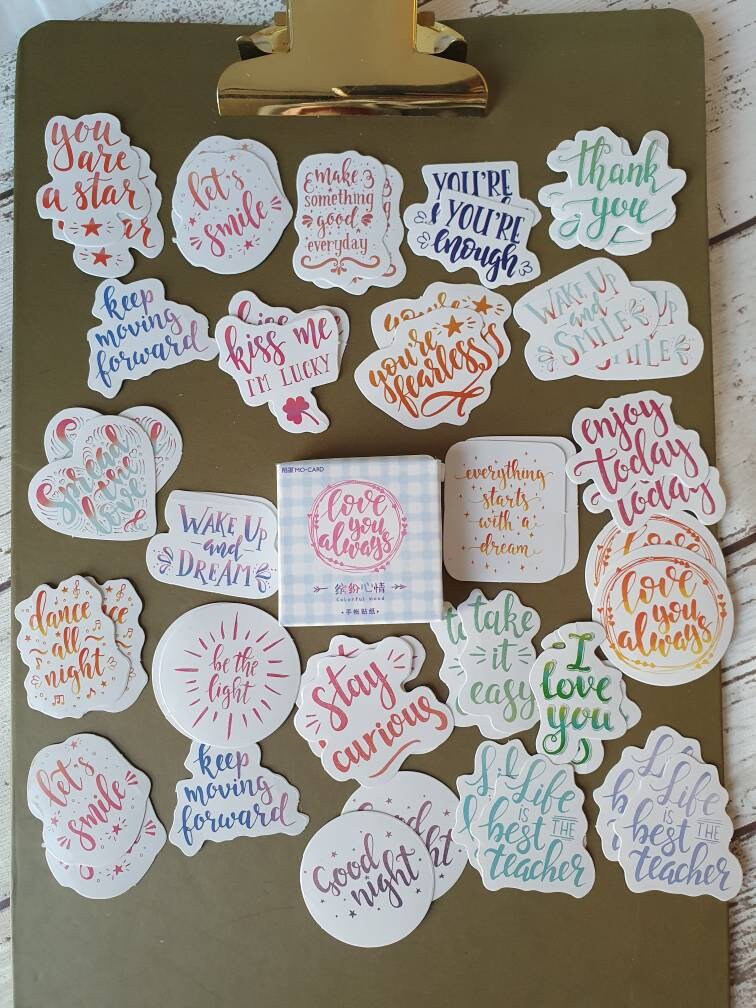 you
are
a star
let's
smile
make
something
good
everyday
YOU'RE
YOU'RE
enough
thank
you
keep
moving
forward
kiss me
kiss me
I'M LUCKY
you're
you're
fearless
WAKE UP
and
SMILE
UP
SMILE
Spread
the
love
WAKE UP
and
DREAM
MO·CARD
love
you
always
缤纷心情
Colorful mood
•手帐贴纸•
everything
starts
with a
dream
enjoy
today
today
love
you
always
dance
all
night
be the
light
stay
curious
take
it
easy
I
love
you
let's
smile
keep
moving
forward
good
night
Life
IS THE
best
teacher
Life
IS THE
best
teacher